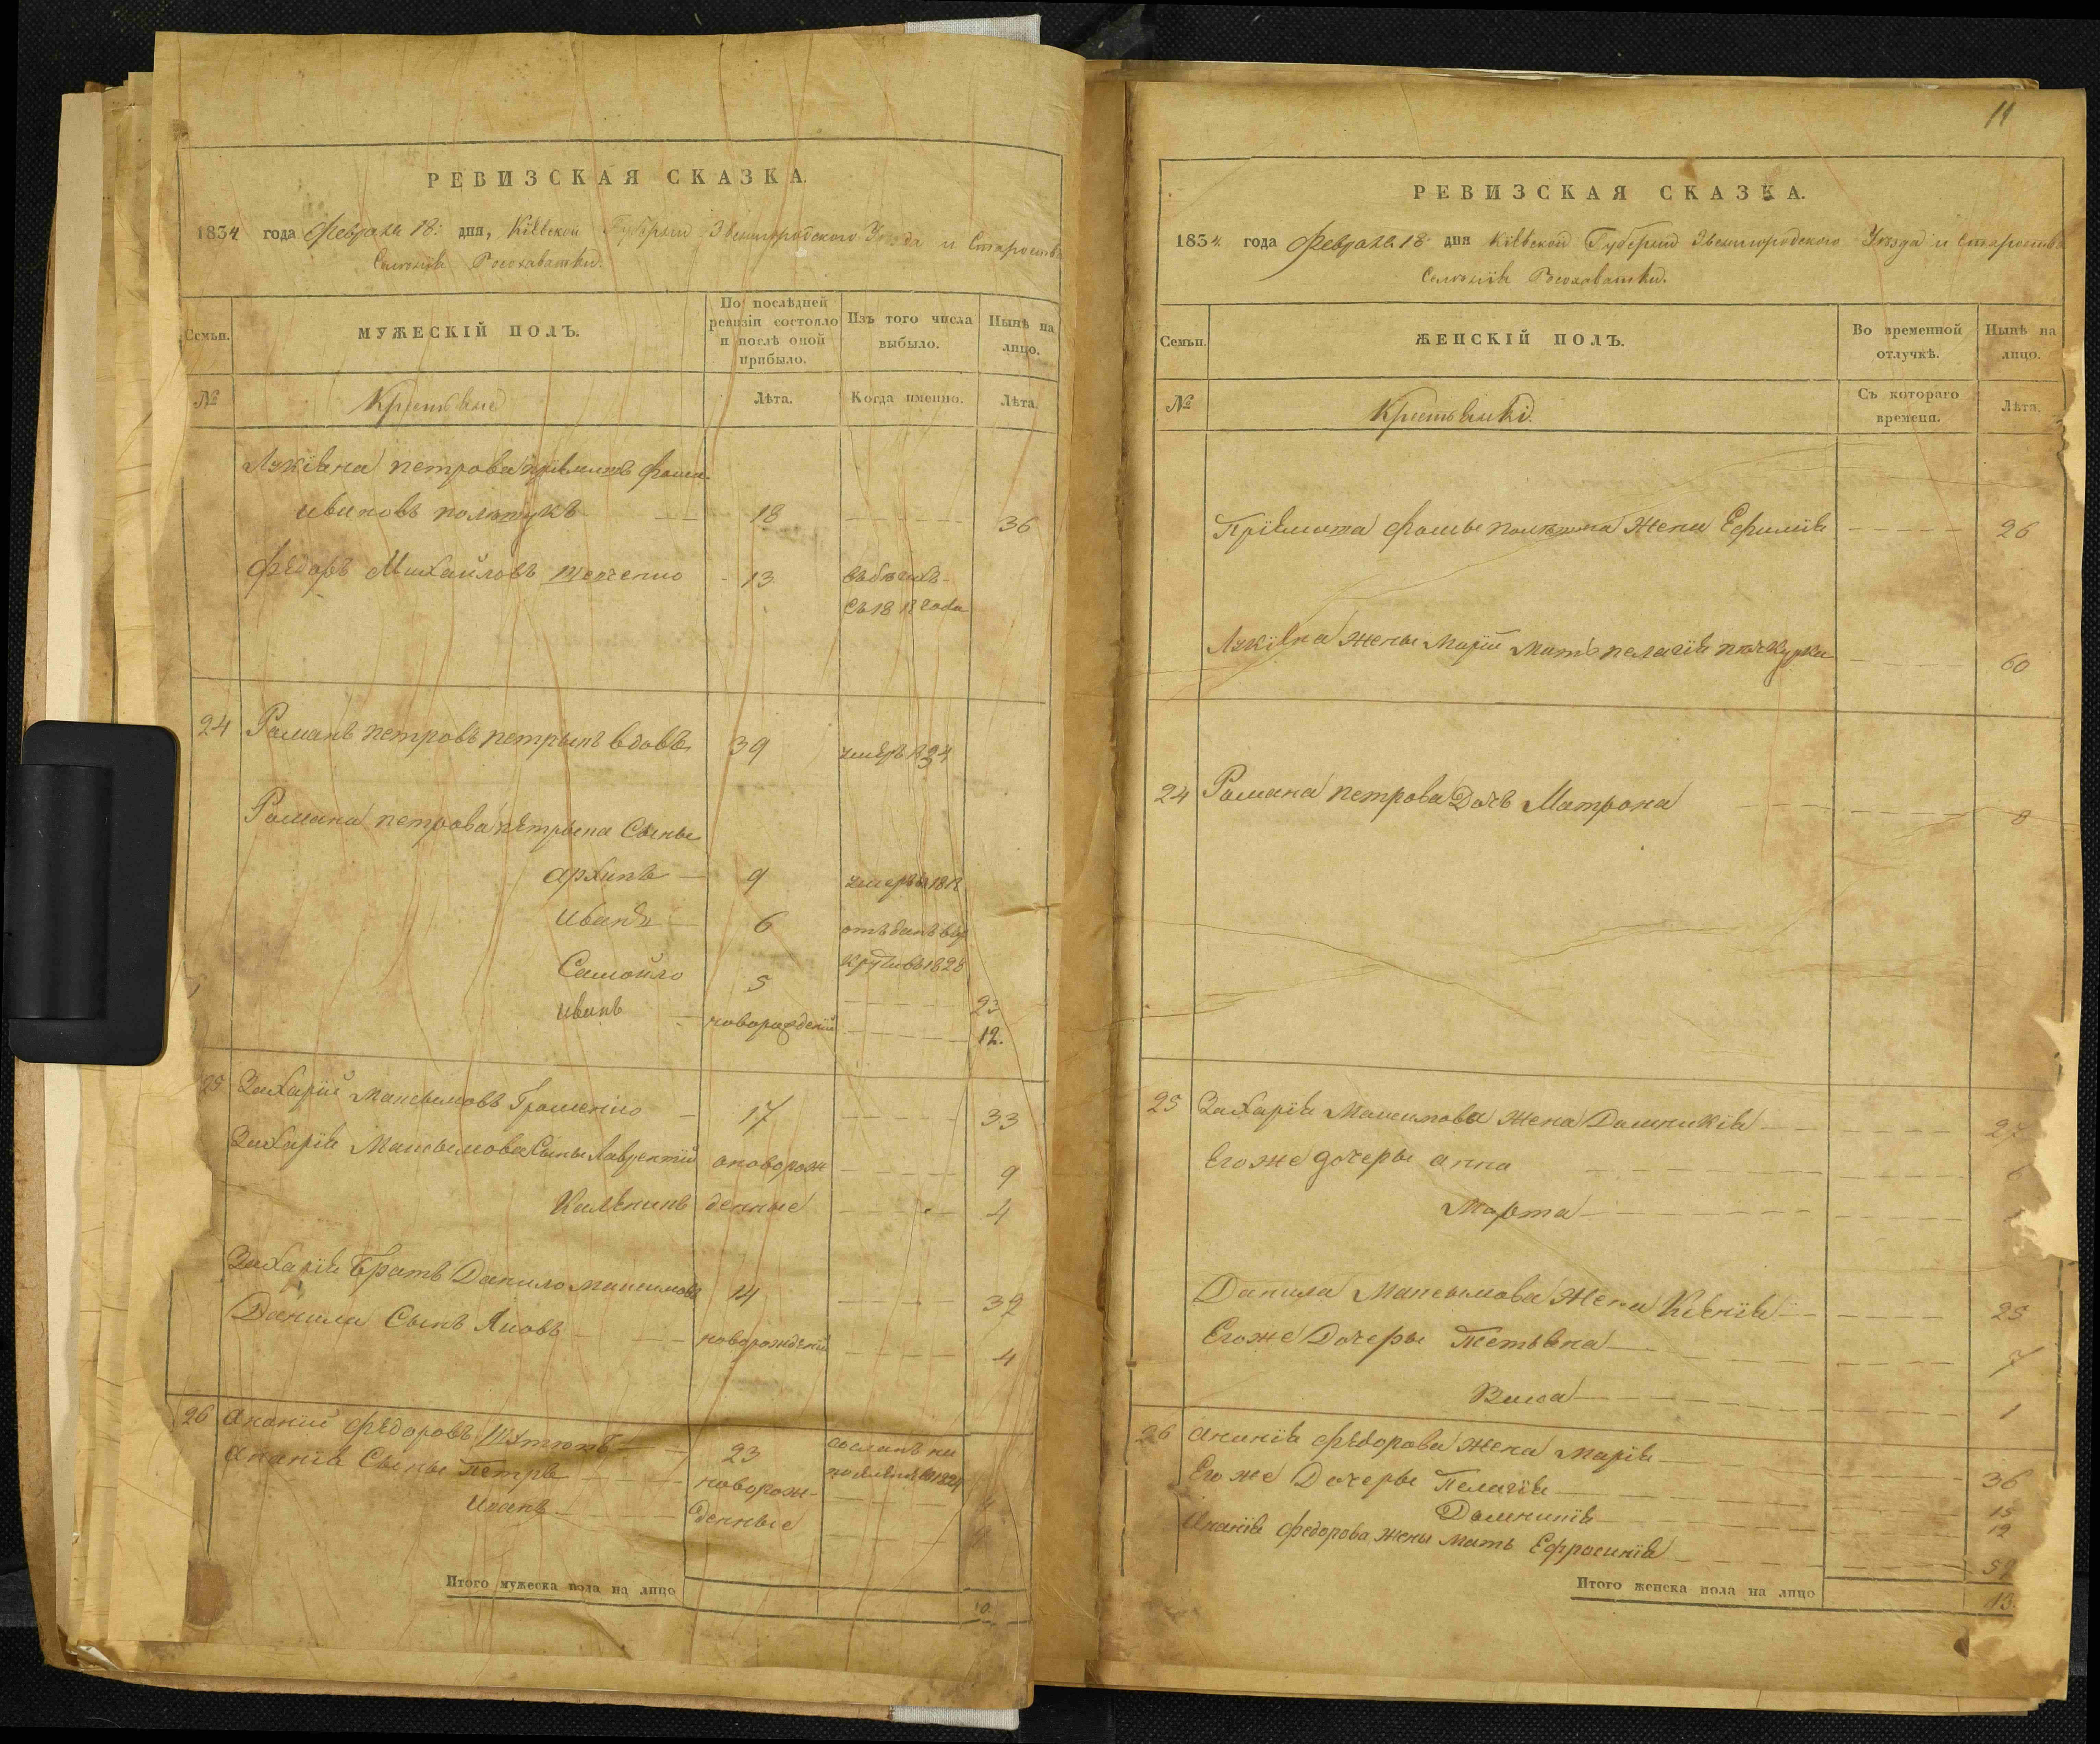 РЕВИЗСКАЯ СКАЗКА.
1834 года Февраля 18. дня, Кіевской Губерніи Звенигородского Уезда и Староства
Селенія Росоховатки.
Семьи. МУЖЕСКІЙ ПОЛЪ. По послѣдней ревизіи состояло и послѣ оной прибыло. Изъ того числа выбыло. Нынѣ на лицо.
№ Крестьяне Лѣта. Когда именно. Лѣта.
Лукіяна петрова пріймитъ фома
ивановъ 18 36
Федоръ Михайловъ 13 въбегахъ
съ 18 года
24 Романъ петровъ петрынъ вдовъ 39 умеръ 1834
Романа петрова петрына Сыны
архипъ 9 умеръ 18
иванъ 6 отъданъ въ
1828
Самойло 5 23
иванъ новорожденій 12.
25 Захарій Максымовъ Грошенко 17 33
Захарія Максымова Сыны Лаврентій оноворож 9
Калѣникъ денные 4
Захарія Братъ Данило максимовъ 14 32
Данила Сынъ Яковъ новорожденій 4
26 ананій Федоровъ 23 сосланъ на
ананія Сыны Петръ новорож-
иванъ денные
Итого мужеска пола на лицо 10
11
РЕВИЗСКАЯ СКАЗКА.
1834. года Февраля 18. дня Кіевской Губерніи Звенигородского Уезда и Староства
Селенія Росоховатки.
Семьи. ЖЕНСКІЙ ПОЛЪ. Во временной отлучкѣ. Нынѣ на лицо.
№ Крестьянкі. Съ котораго времени. Лѣта.
Пріймита фомы жена Ефимія 26
Лукіяна жены Маріи мать пелагія 60
24 Романа петрова Дочъ Матрона 8
25 Захарія Максимова жена Домникія 27
Егоже дочеры анна 6
Марта
Данила Максымова Жена Ксенія 25
Егоже Дочеры Тетьяна 7
1
26 ананія Федорова жена марія 36
Его же Дочеры Пелагія 15
Домникія 12
Ананія федорова жены мать Ефросинія 59
Итого женска пола на лицо 13.